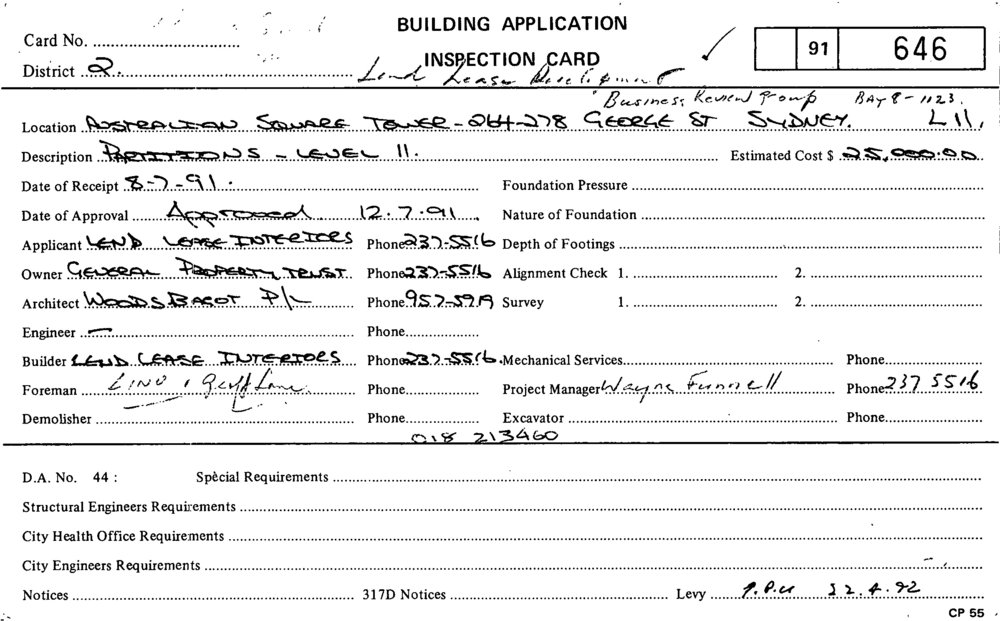 BUILDING APPLICATION
Card No.
INSPECTION CARD
91 646
District 2.
Lend Lease Development
Business Review Group BAY 8-1123.
Location AUSTRALIAN SQUARE TOWER - 264-278 GEORGE ST SYDNEY. L11.
Description PARTITIONS - LEVEL 11. Estimated Cost $ 25,000.00
Date of Receipt 8-7-91. Foundation Pressure
Date of Approval Approved 12.7.91 Nature of Foundation
Applicant LEND LEASE INTERIORS Phone 237-5516 Depth of Footings
Owner GENERAL PROPERTY TRUST. Phone 237-5516 Alignment Check 1. 2.
Architect WOODS BAGOT P/L Phone 957-5919 Survey 1. 2.
Engineer – Phone
Builder LEND LEASE INTERIORS Phone 237-5516. Mechanical Services Phone
Foreman LINO / Geoff Lane Phone Project Manager Wayne Funnell Phone 237 5516
Demolisher Phone Excavator Phone
018 213460
D.A. No. 44 : Special Requirements
Structural Engineers Requirements
City Health Office Requirements
City Engineers Requirements
Notices 317D Notices Levy 22.4.92
CP 55